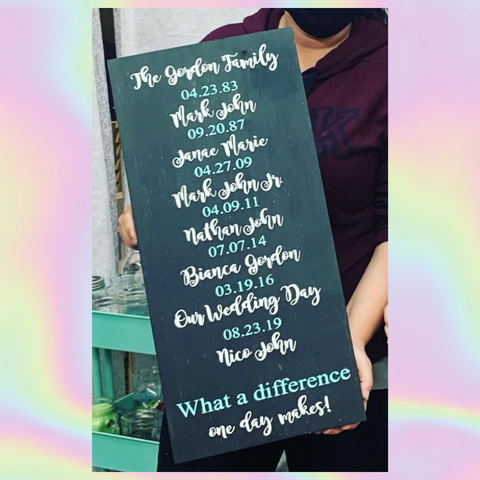 The Gordon Family
04.23.83
Mark John
09.20.87
Janae Marie
04.27.09
Mark John Jr.
04.09.11
Nathan John
07.07.14
Bianca Gordon
03.19.16
Our Wedding Day
08.23.19
Nico John
What a difference
one day makes!